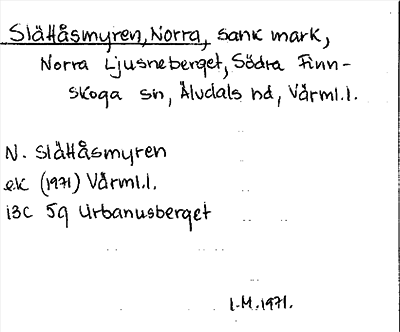 Slättåsmyren, Norra, sank mark,
Norra Ljusneberget, Södra Finn-
skoga sn, Älvdals hd, Värml.l.
N. Slättåsmyren
ek (1971) Värml.l.
13C 5g Urbanusberget
I.M.1971.